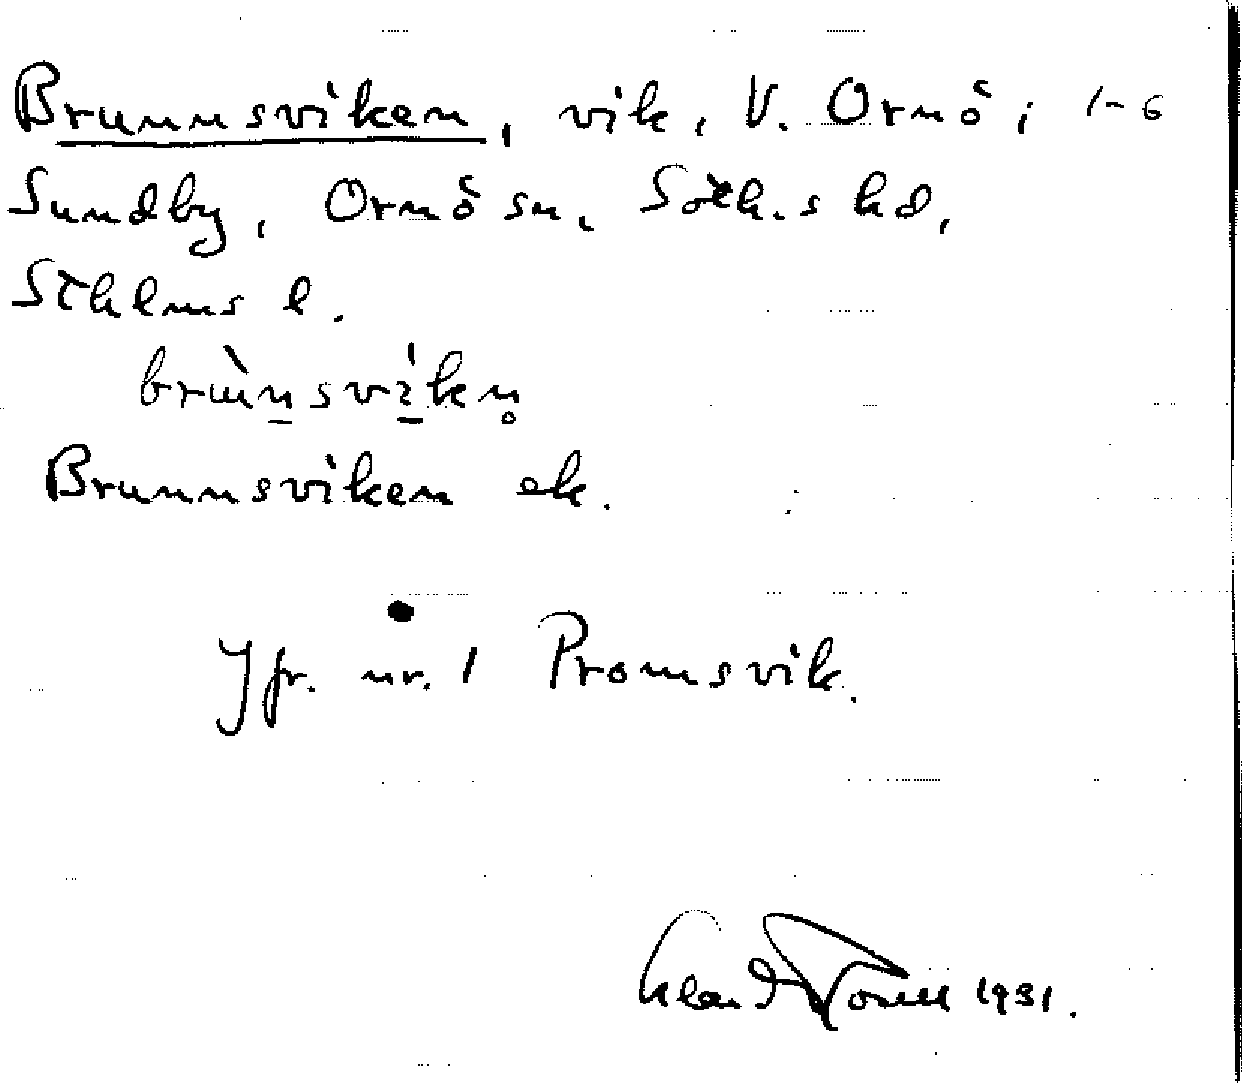 Brunnsviken, vik, V. Ornö; 1-6
Sundby, Ornö sn, Soth.s hd,
Sthlms l.
brùn̲svi̲kn̥
Brunnsviken ek.
Jfr. nr. 1 Promsvik.
1931.